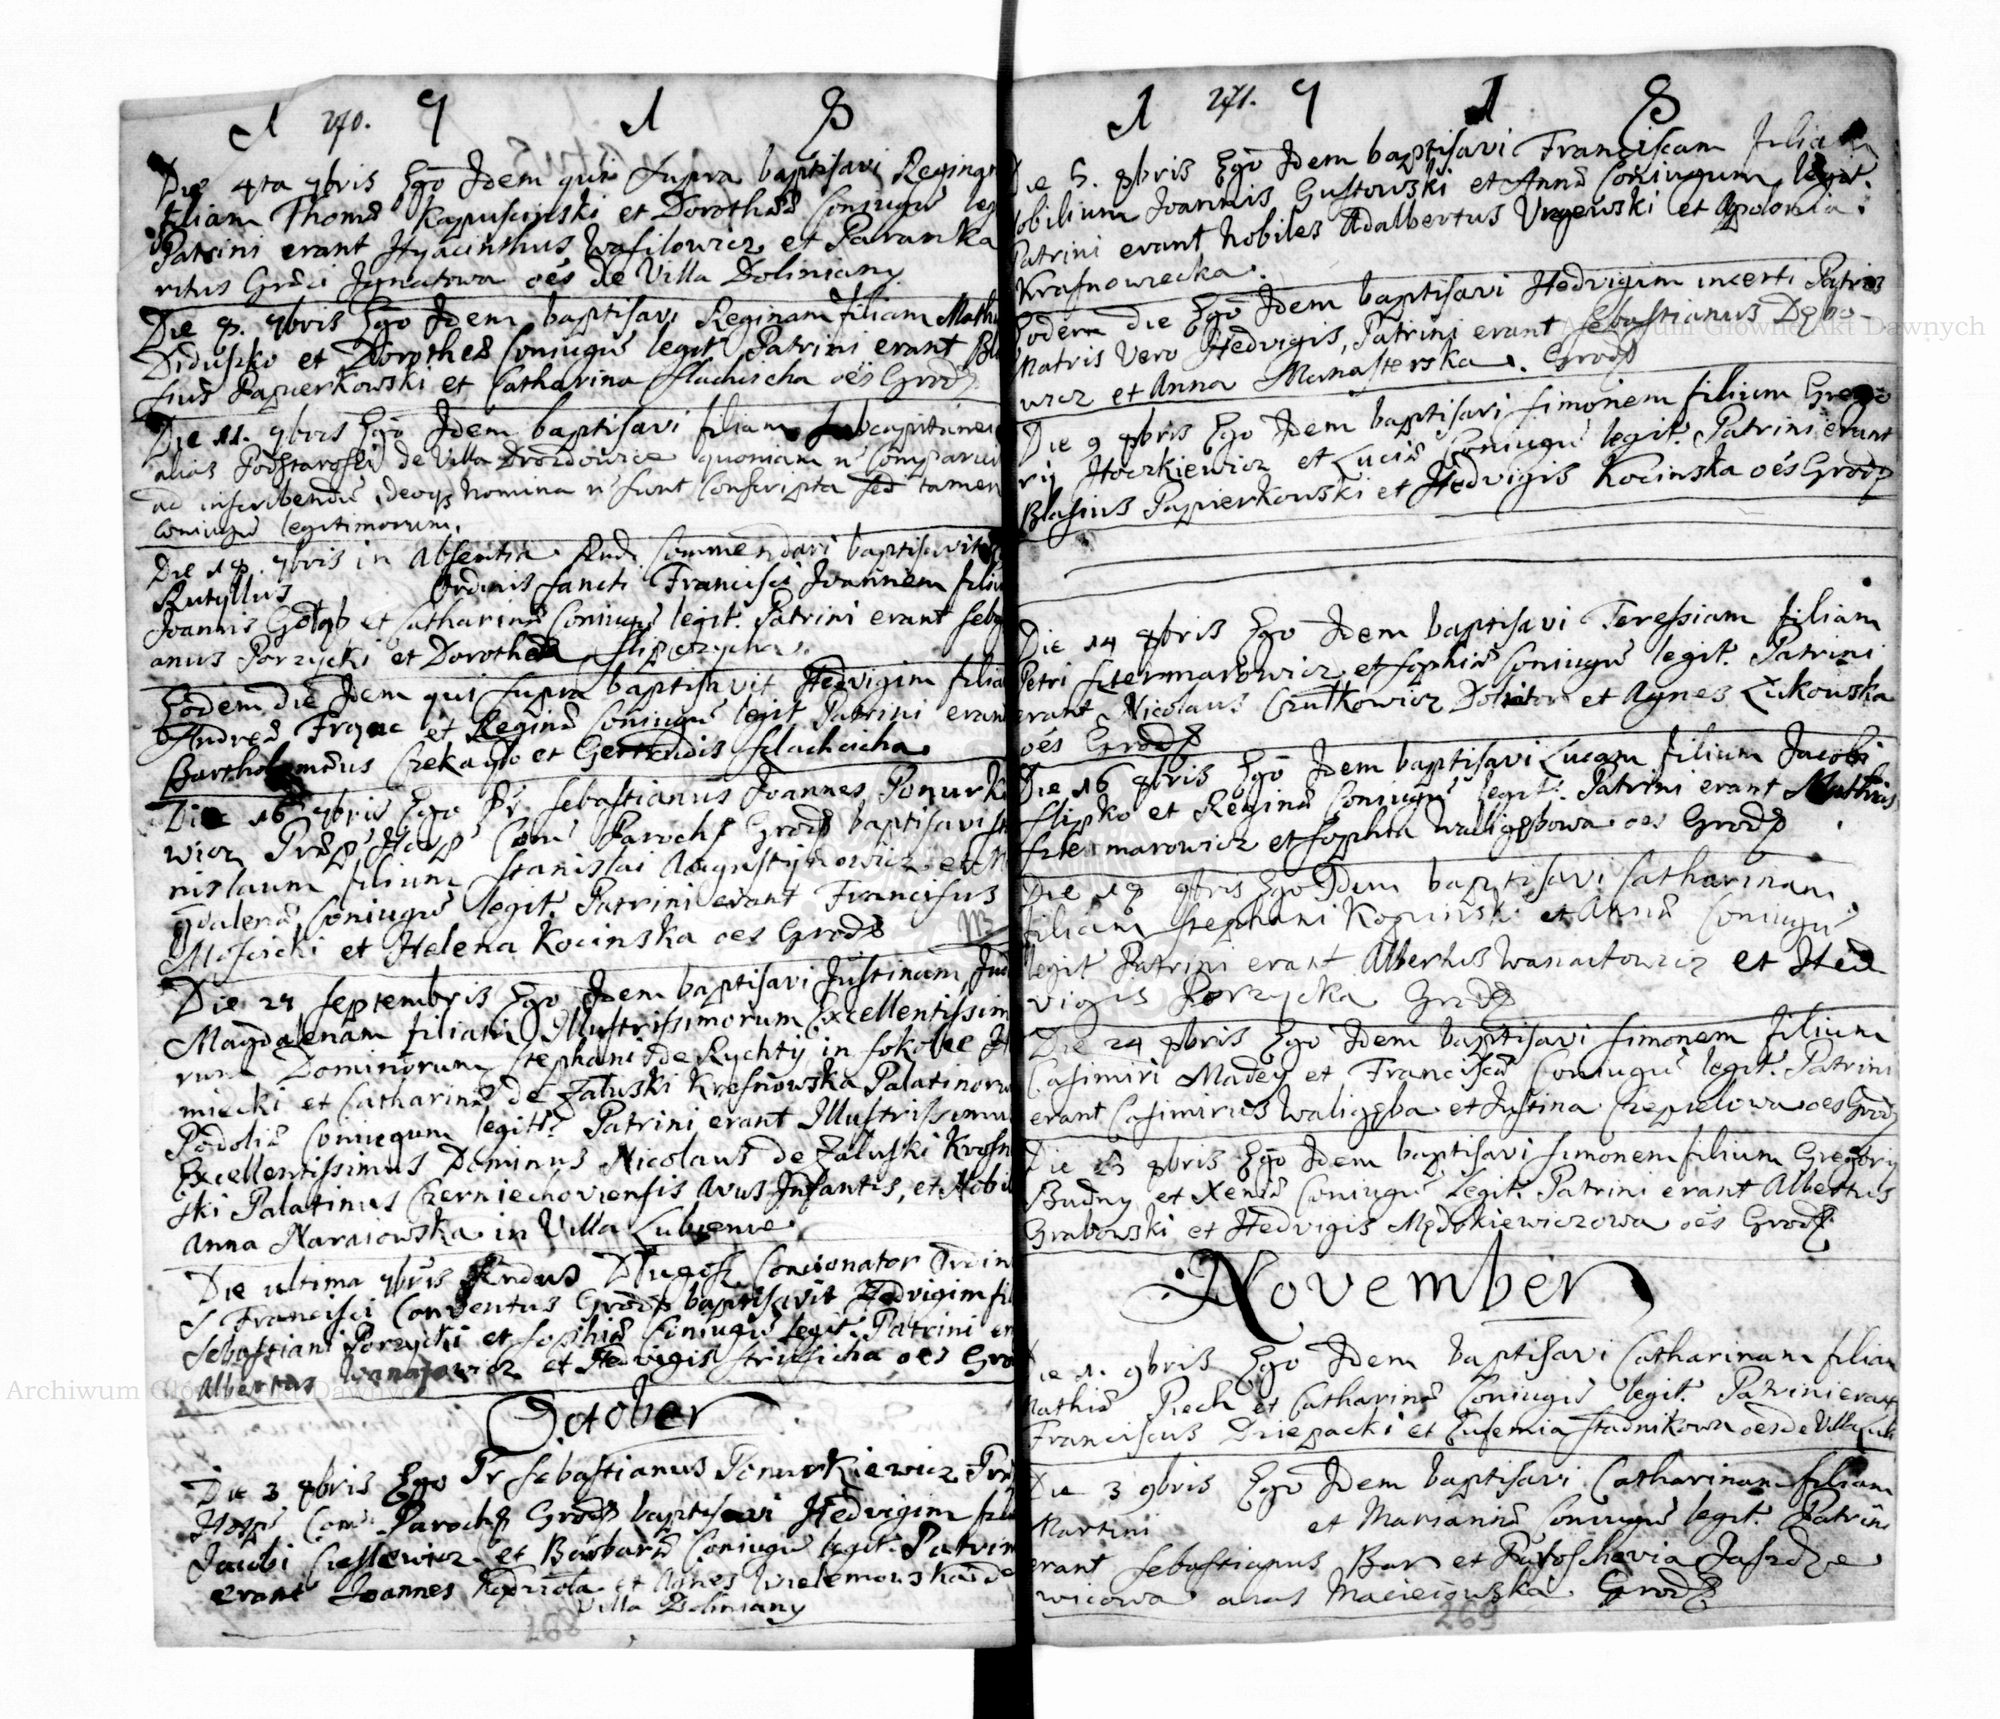 1 240. 7 1 8
Die 4ta 7bris Ego Idem qui supra baptisavi Reginam
filiam Thomæ Kapuscinski et Dorotheæ Coniugū leg
Patrini erant Hyacinthus Wasilowicz et Paranka
ritus Græci Ignatowa oēs de Villa Doliniany
Die 8. 7bris Ego Idem baptisavi Reginam filiam Math
Diduszko et Dorotheæ Coniugū legit Patrini erant Bla
sius Papierkowski et Catharina Slachcicha oēs Grod
Die 11. 7bris Ego Idem baptisavi filiam Subcapitanei
alias Podstarosta de Villa Drozdowice quoniam n Comparuer
ad inscribendū ideoqz Nomina n sunt Conscripta sed tamen
Coniugū legitimorum.
Die 18. 7bris in Absentia Rndi Commendarii baptisavit
Rutyllus Ordinis Sancti Francisci Joannem filiu
Joannis Gołąb et Catharinæ Coniugū legit. Patrini erant Seba
anus Porzycki et Dorothea
Eodem die Idem qui supra baptisavit Hedvigim filia
Andreæ et Reginæ Coniugū legit Patrini erant
Bartholomæus Czekaylo et Gertrudis Slachcicha
Die 16 7bris Ego Pr. Sebastianus Joannes Ponurk
wicz Com Paroch Grod baptisavi St
nislaum filium Stanislai Augustynowicz et M
gdalenæ Coniugū legit Patrini erant Francisus
Moscicki et Helena Kocinska oes Grod NB
Die 24 Septembris Ego Idem baptisavi Justinam, Jud
Magdalenam filiam Illustrissimorum Excellentissim
rum Dominorum Stephani de Rychty in Sokolec
miecki et Catharinæ de Załuski Krosnowska Palatinoru
Podoliæ Coniugum legitt. Patrini erant Illustrissimu
Excellentissimus Dominus Nicolaus de Zaluski Krosn
ski Palatinus Czerniechoviensis Avus Infantis, et Nobil
Anna Naraiowska in Villa Lubienie
Die ultima 7bris Rndus Concionator Ordin
S Francisci Conventus Grod baptisavit Hedvigim fil
Sebastiani Porzycki et Sophiæ Coniugū legit. Patrini er
Albertus et Hedvigis oes Gro
October
Die 3 8bris Ego Pr Sebastianus Ponurkiewicz
Hosp Com Paroch Grod baptisavi Hedvigim fil
Jacobi et Barbaræ Coniugū legit. Patrin
erant Joannes et Agnes de
Villa Doliniany
268
1 241. 7 1 8
Die 5. 8bris Ego Idem baptisavi Franciscam filiam
obilium Joannis Gustowski et Annæ Coniugum legit.
Patrini erant Nobiles Adalbertus et Apolonia
Krasnowiecka.
Eodem die Ego Idem baptisavi Hedvigim incerti Patris
Matris Vero Hedvigis, Patrini erant Sebastianus Dębo
wicz et Anna Manasterska. Grod
Die 9 8bris Ego Idem baptisavi Simonem filium Grego
rij Hoczkiewicz et Luciæ Coniugū legit. Patrini erant
Blasius Papierkowski et Hedvigis Kocinska oēs Grod
Die 14 8bris Ego Idem baptisavi Teressiam filiam
Petri Szternarowicz et Sophiæ Coniugū legit. Patrini
erant Nicolaus Czułkowicz et Agnes Żukowska
oēs Grod
Die 16 8bris Ego Idem baptisavi Lucam filium Jacobi
Slipko et Reginæ Coniugū legit. Patrini erant Mathias
Szternarowicz et Sophia Waligębowa oes Grod
Die 18 8bris Ego Idem baptisavi Catharinam
filiam Stephani et Annæ Coniugū
legit Patrini erant Albertus et Hed
vigis Porzycka Grod
Die 24 8bris Ego Idem baptisavi Simonem filium
Casimiri Madey et Franciscæ Coniugū legit. Patrini
erant Casimirus Waligęba et Justina Czepielowa oes Grod
Die 25 8bris Ego Idem baptisavi Simonem filium Gregorij
Budny et Xeniæ Coniugū legit. Patrini erant Albertus
Grabowski et Hedvigis oēs Grod
November
Die 1. 9bris Ego Idem baptisavi Catharinam filiam
Mathiæ Piech et Catharinæ Coniugū legit. Patrini erant
Franciscus Dziepacki et Eufemia Stadnikowa oes de Villa
Die 3 9bris Ego Idem baptisavi Catharinam filiam
Martini et Mariannæ Coniugū legit. Patrini
erant Sebastianus Bar et
wicowa alias Macieiowska Grod
269
Archiwum Główne Akt Dawnych
Archiwum Główne Akt Dawnych